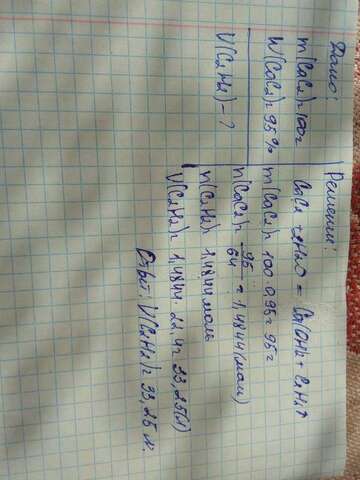 Дано:
m(CaC₂)=100г
W(CaC₂)=95%
V(C₂H₂)=?
Решение:
CaC₂ + 2H₂O = Ca(OH)₂ + C₂H₂↑
m(CaC₂)= 100·0,95= 95г
n(CaC₂)= 95/64 = 1,4844(моль)
n(C₂H₂)= 1,4844моль
V(C₂H₂)= 1,4844·22,4= 33,25(л)
Ответ: V(C₂H₂)= 33,25 л.